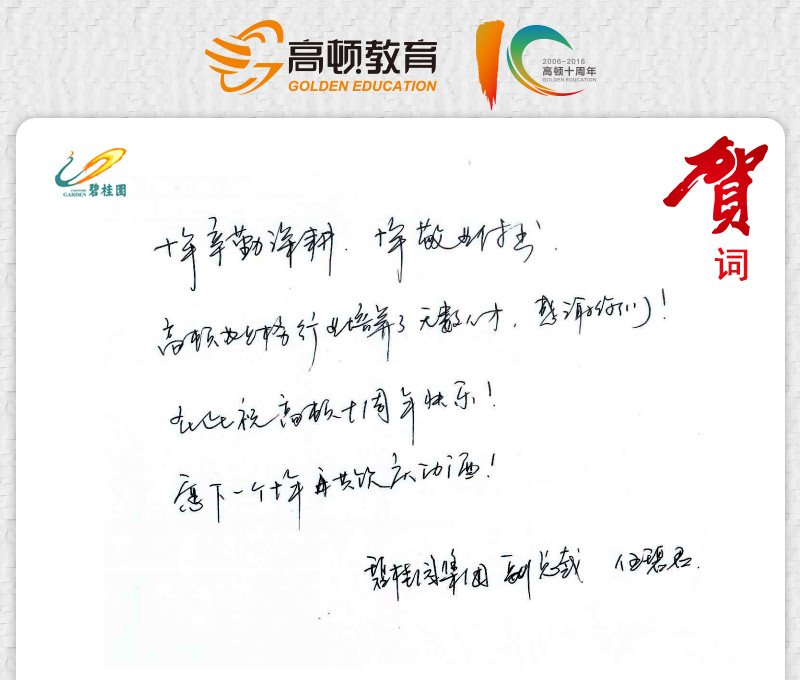 高顿教育
GOLDEN EDUCATION
2006-2016
高顿十周年
GOLDEN EDUCATION
碧桂园
GARDEN
贺
词
十年辛勤深耕. 十年敬业付出.
高顿为行业培养了无数人才, 感谢你们!
在此祝高顿十周年快乐!
愿下一个十年再共饮庆功酒!
碧桂园集团 副总裁 伍碧君.